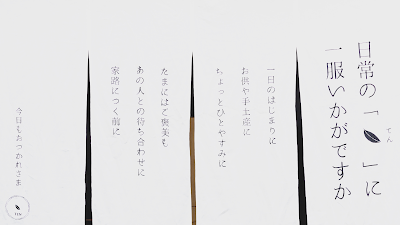 日常の「　」に
てん
一服いかがですか
一日のはじまりに
お供や手土産に
ちょっとひとやすみに
たまにはご褒美も
あの人との待ち合わせに
家路につく前に
今日もおつかれさま
TEN